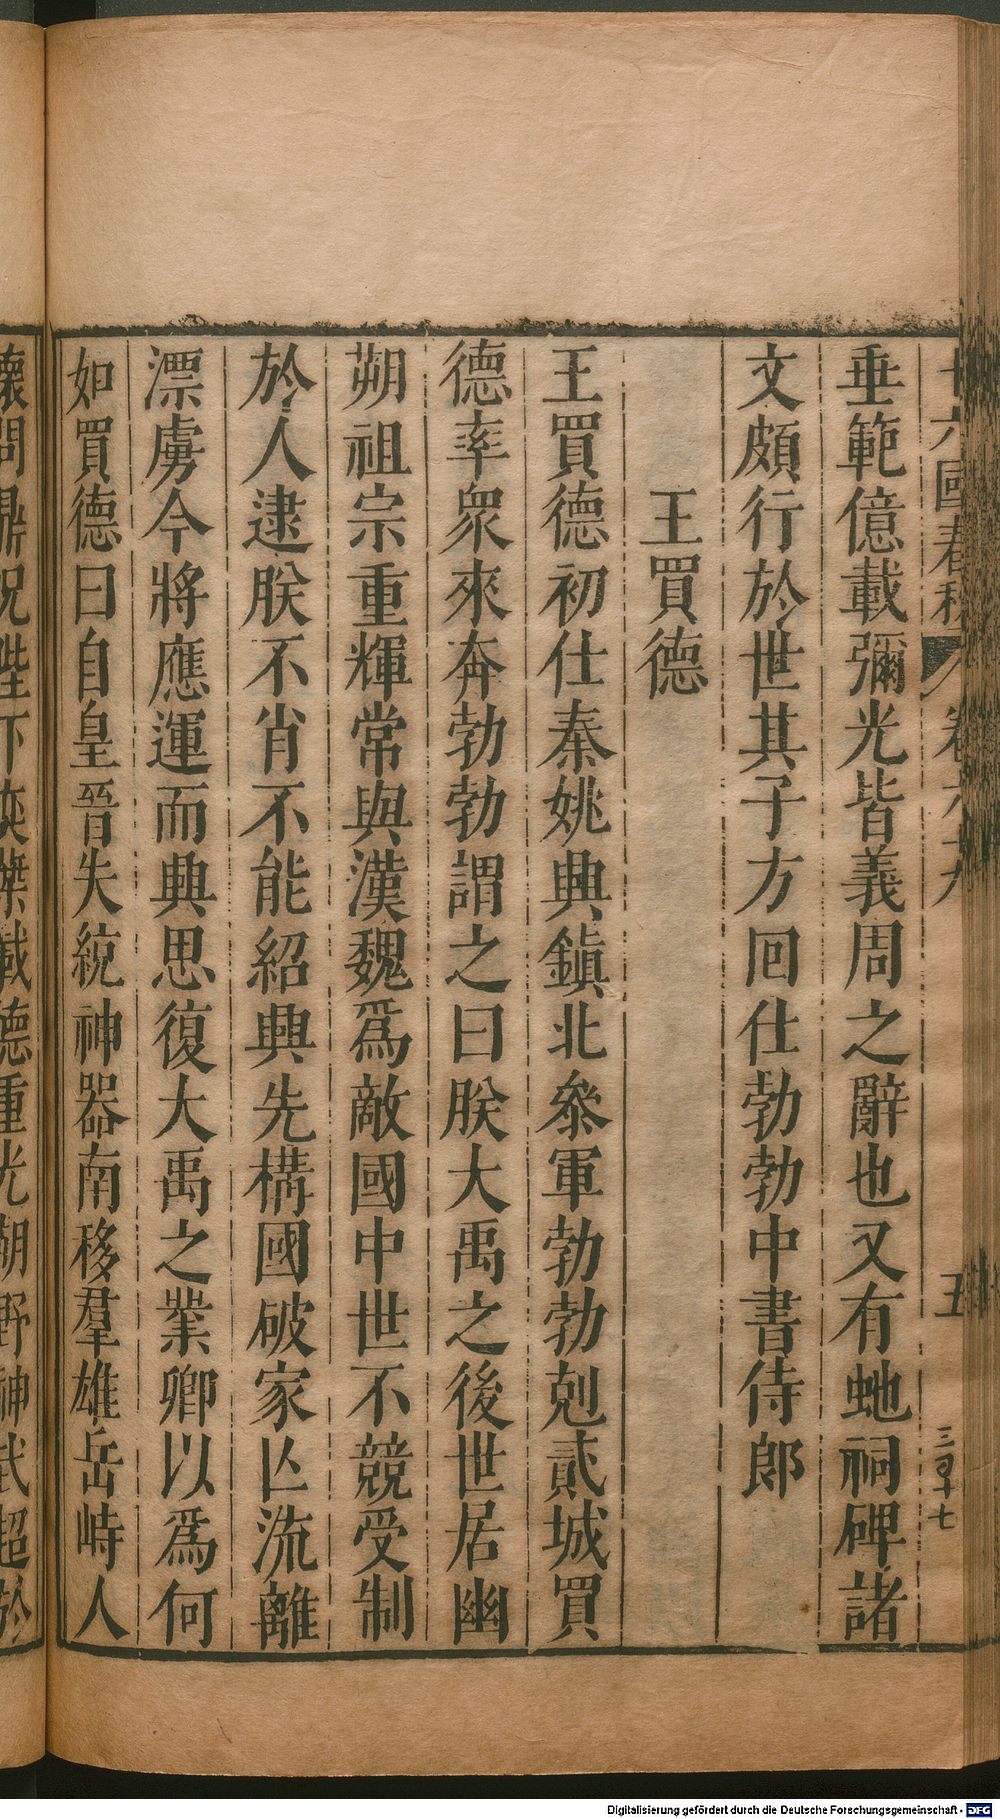 十六國春秋 卷六十九 五 三百十七
垂範億載彌光皆義周之辭也又有虵祠碑諸
文頗行於世其子方回仕勃勃中書侍郎
王買德
王買德初仕秦姚興鎮北參軍勃勃剋貳城買
德率衆來奔勃勃謂之曰朕大禹之後世居幽
朔祖宗重輝常與漢魏爲敵國中世不競受制
於人逮朕不肖不能紹興先構國破家亾流離
漂虜今將應運而興思復大禹之業卿以爲何
如買德曰自皇晉失統神器南移羣雄岳峙人
懷問鼎況陛下奕葉載德重光朔野神武超於
Digitalisierung gefördert durch die Deutsche Forschungsgemeinschaft - DFG